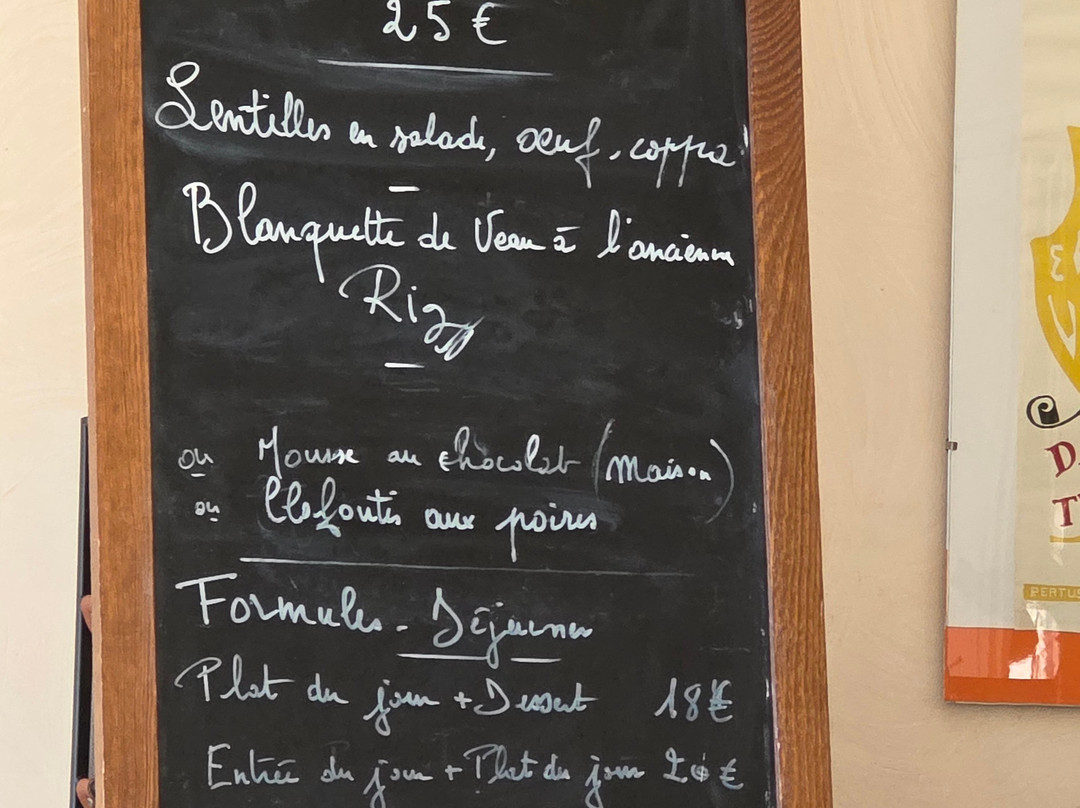 25 €
Lentilles en salade, oeuf, coppa
Blanquette de Veau à l'ancienne
Riz
ou Mousse au chocolat (Maison)
ou Clafoutis aux poires
Formules - Déjeuner
Plat du jour + Dessert 18 €
Entrée du jour + Plat du jour 20 €
D
T
PERTUS